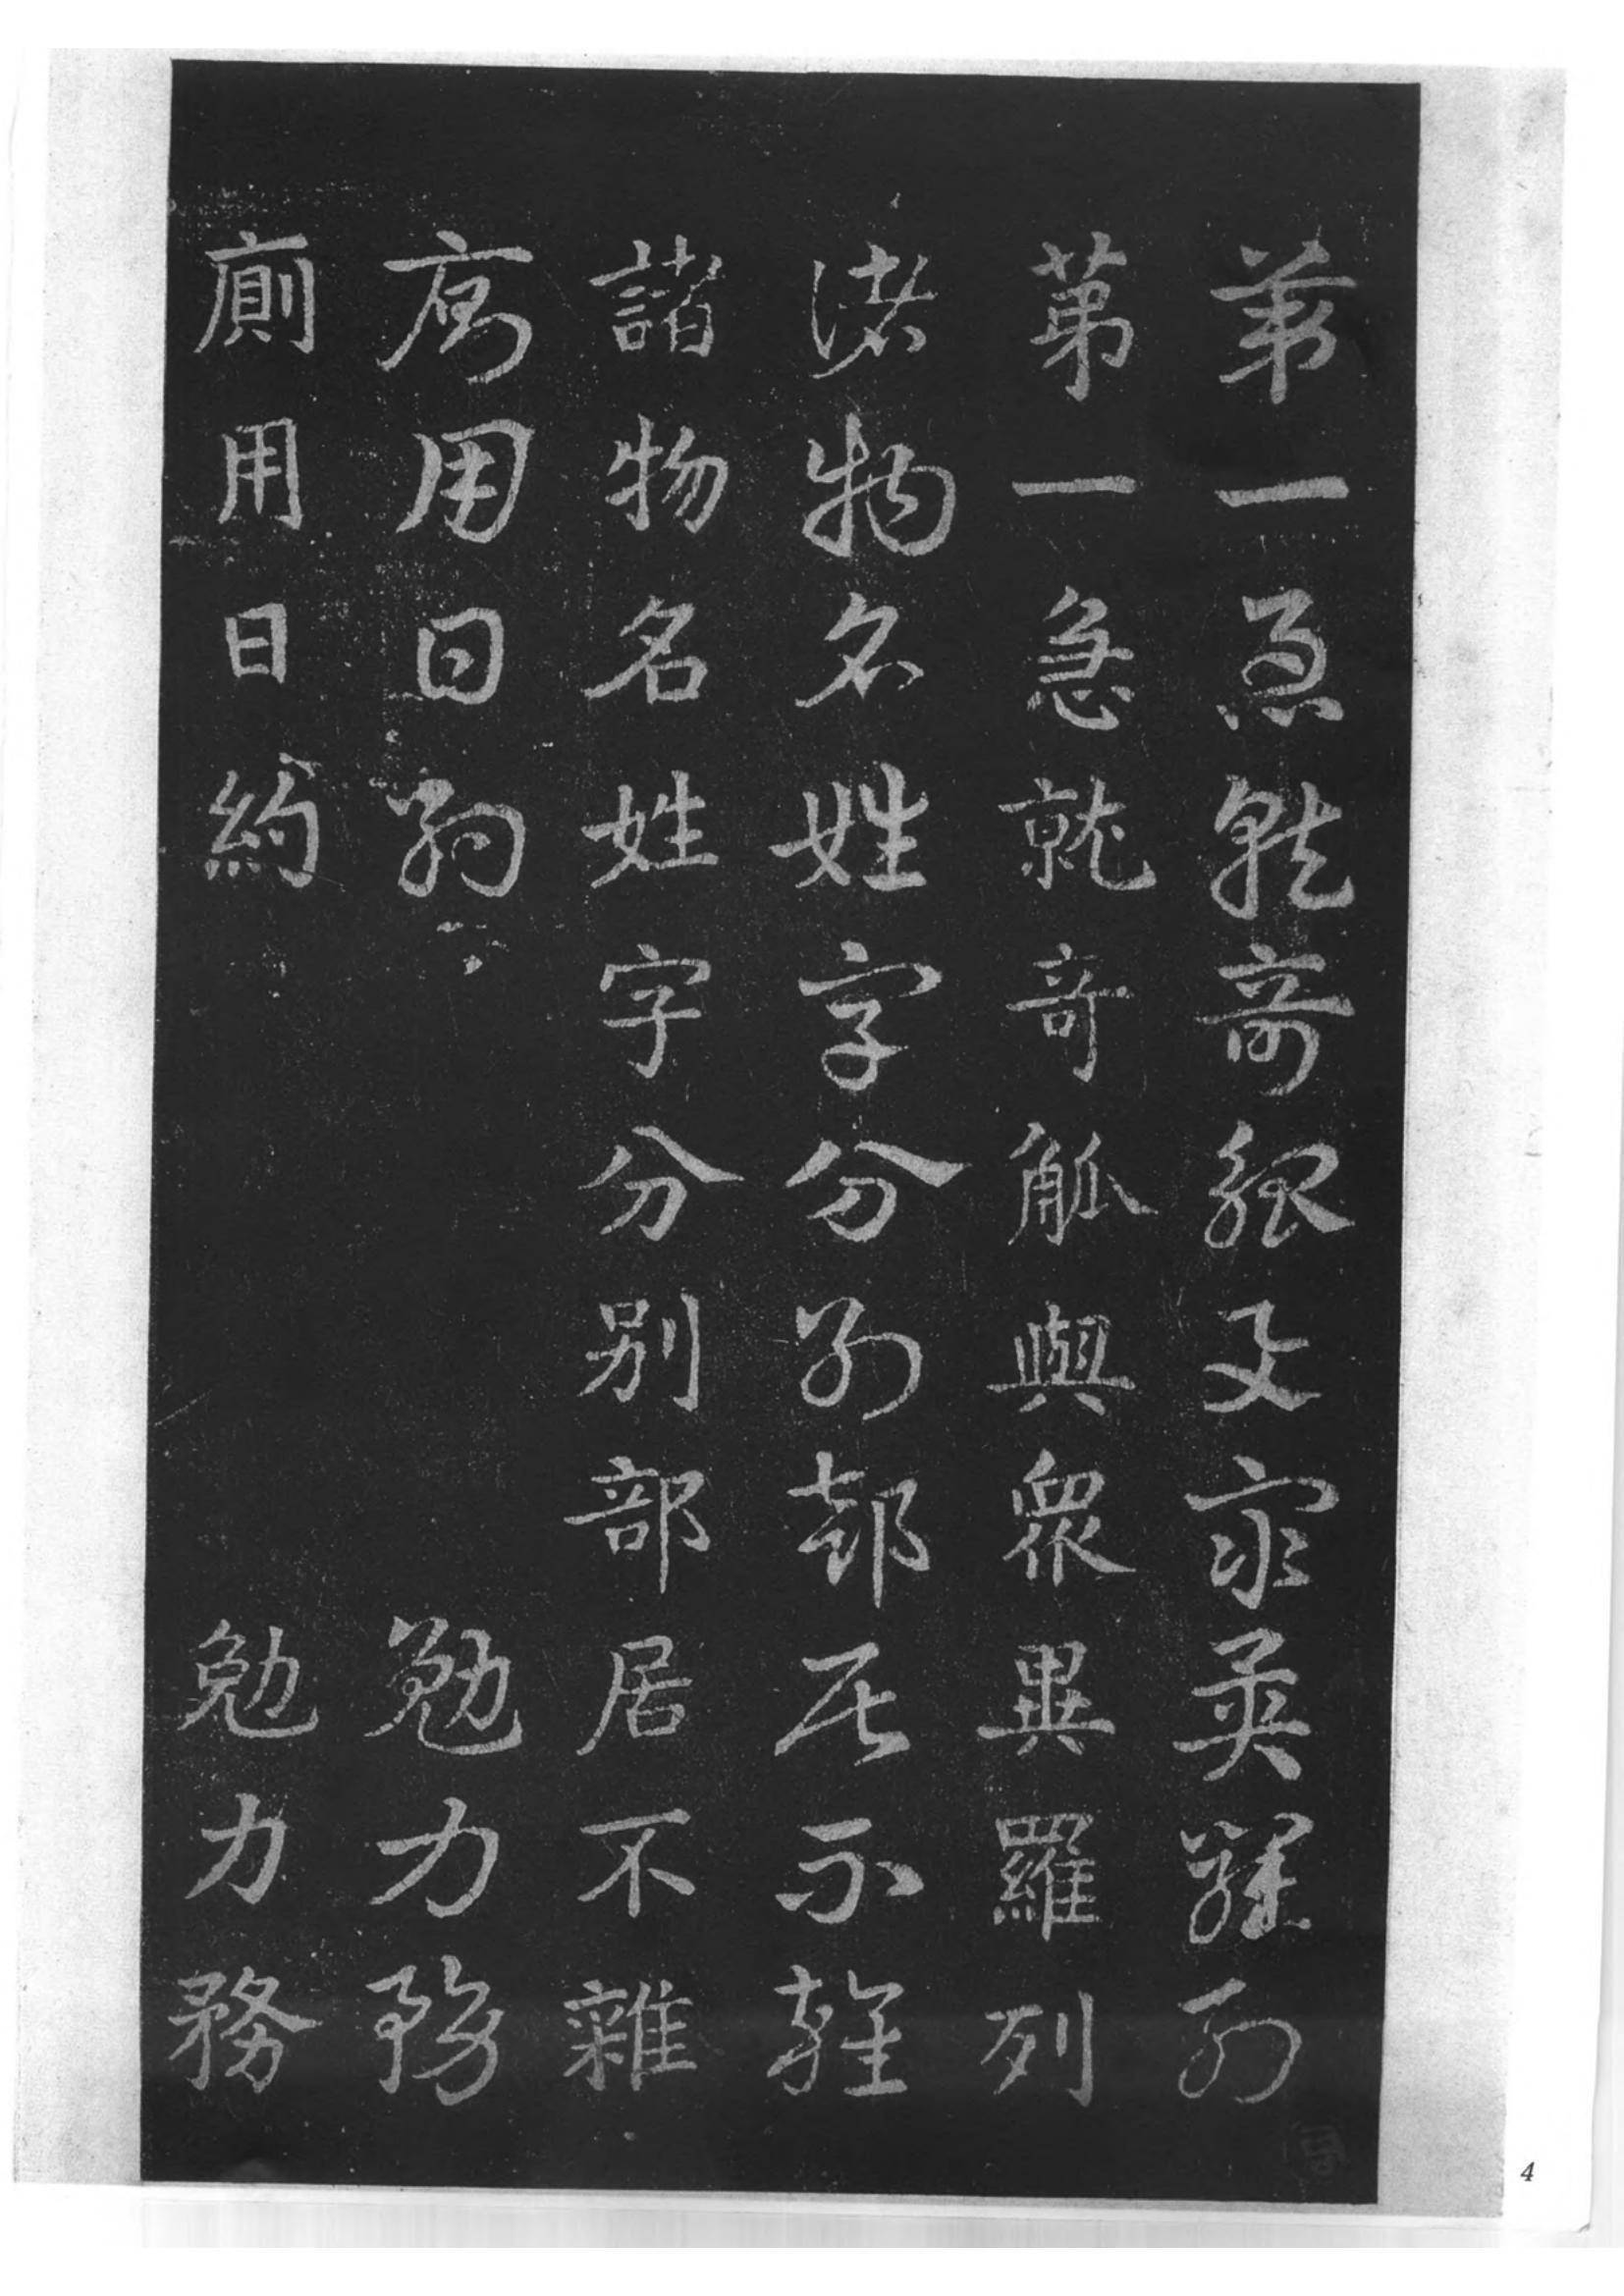 第一急就奇觚與衆異羅列
第一急就奇觚與衆異羅列
諸物名姓字分别部居不雜
諸物名姓字分别部居不雜
廁用日約 勉力務
廁用日約 勉力務
4